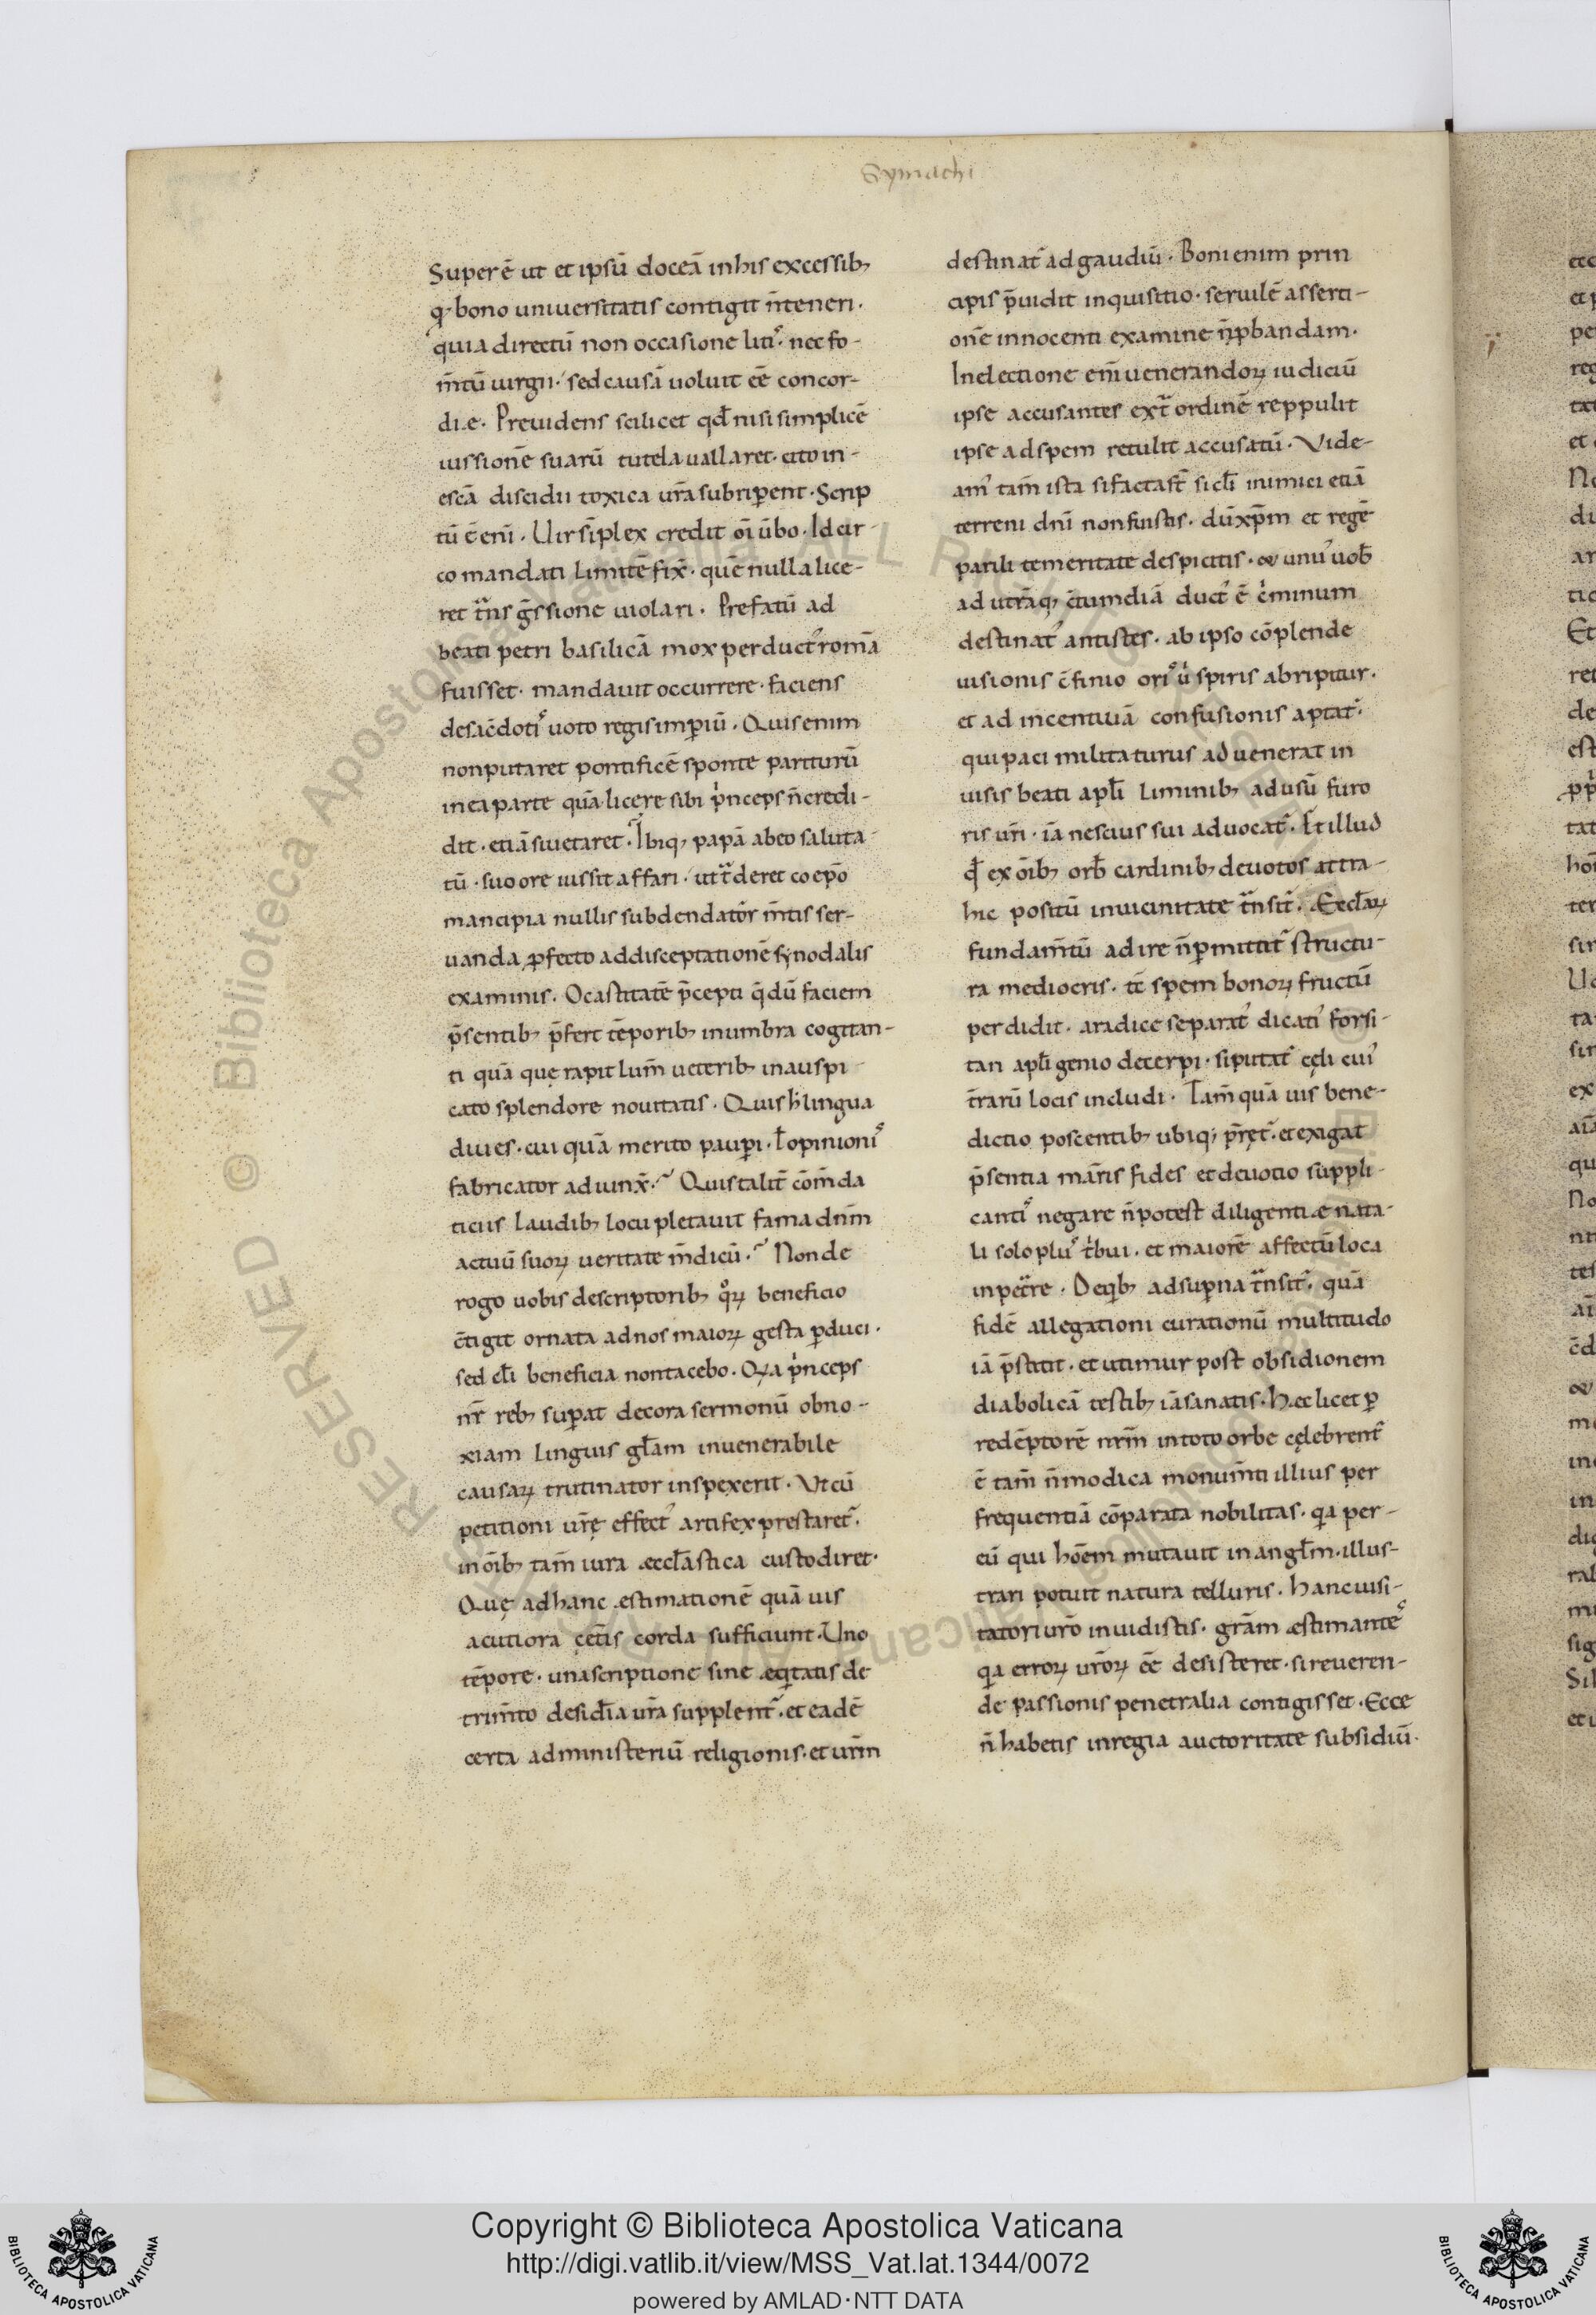 Symachi
Superē ut et ipsū doceā inhis excessib;
q; bono uniuersitatis contigit n̄teneri.
quia directū non occasione liti᷒. nec fo-
m̄tū iurgii. sed causā uoluit eē concor-
die. Preuidens scilicet qđ nisi simplicē
iussionē suarū tutela uallaret. cito in-
escā discidii toxica ur̄a subriperent. Scrip
tū ē eni̅. Uir si̅plex credit oi̅ ūbo. Idcir-
co mandati limitē fix̄. quē nulla lice-
ret t̃ns g̃ssione uiolari. Prefatū ad
beati petri basilicā mox perduct᷒ romā
fuisset. mandauit occurrere. faciens
desac̄doti᷒ uoto regis imperiū. Quis enim
nonputaret pontificē sponte pariturū
inea parte quā licere sibi p̍nceps n̄credi-
dit. etiā siuetaret. Ibiq; papā abeo saluta-
tū. suo ore iussit affari. utt̃deret coepō
mancipia nullis subdendator̄ m̄tis ser-
uanda p̱fecto addisceptationē synodalis
examinis. Ocastitatē p̄cepti q̄dū faciem
p̄sentib; p̄fert tēporib; inumbra cogitan-
ti quā quę rapit lum̄ ueterib; inauspi-
cato splendore nouitatis. Quis h̄ lingua
diues. cui quā merito pauperi. ł opinioni᷒
fabricator adiunx̄. Quis talit̄ cōm̄da
ticiis laudib; locupletauit fama dnm̄
actuū suoꝝ ueritate m̄dicū. Non de
rogo uobis descriptorib; qͦꝝ beneficio
c̄tigit ornata adnos maioꝝ gesta perduci.
sed cłi beneficia nontacebo. Qꝫa p̍nceps
nr̄ reb; superat decora sermonū obno-
xiam linguis głam inuenerabile
causaꝝ trutinator inspexerit. Vt cū
petitioni ur̄ę effect᷒ artifex prestaret᷒.
in oi̅b; tam̄ iura æccłastica custodiret.
Quę adhanc æstimationē quā uis
acutiora cęt̄is corda sufficiunt. Uno
tēpore. unascriptione sine æqitatis de
trim̄to desid̄ia ur̄a supplent᷒. et eadē
certa administeriū religionis. et urm̄
destinat᷒ ad gaudiū. Boni enim prin
cipis p̄uidit inquisitio. seruilē asserti-
onē innocenti examine n̄p̱bandam.
Inelectione eni̅ uenerandoꝝ iudiciū
ipse accusantes ext̃ ordinē reppulit
ipse adspem retulit accusatū. Vide-
am᷒ tam̄ ista si factast̄ si cłi inimici etiā
terreni dni̅ non fuistis. dū xp̄m et regē
parili temeritate despicitis. & unu᷒ uob̄
ad utrāq; c̄tumdiā duct᷒ ē c̍minum
destinat᷒ antistes. ab ipso cōplende
uisionis c̄finio ori᷒ ů spiris abripitur.
et ad incentiuā confusionis aptat᷒.
qui paci militaturus aduenerat in
uisis beati apłi liminib; adusū furo
ris uri̅. iā nescius sui aduocat᷒. Et illud
qđ ex oi̅b; orb̄ cardinib; deuotos attra-
hic positū inuicinitate t̃nsit᷒. Æccłaꝝ
fundam̄tū adire n̄permittit᷒ structu-
ra mediocris. tc̄ spem bonoꝝ fructū
perdidit. aradice separat᷒ dicati᷒ forsi-
tan apłi genio decerpi. siputat᷒ cęli cui᷒
t̄rarū locis includi. Tam̄ quā uis bene-
dictio poscentib; ubiq; p̄ret᷒. et exigat
p̄sentia mar̄is fides et deuotio suppli-
canti᷒ negare n̄potest diligentiæ nata-
li solo plu᷒ t̍bui. et maiorē affectū loca
inpet̃re. Deqb; adsuperna t̃nsit᷒. quā
fidē allegationi curationū multitudo
iā p̄stitit. et utimur post obsidionem
diabolicā testib; iāsanatis. Hæc licet per
redēptorē nrm̄ intoto orbe cęlebrent᷒
ē tam̄ n̄modica monum̄ti illius per
frequentiā cōparata nobilitas. qa per-
eū qui hoēm mutauit in angłm. illus-
trari potuit natura telluris. Hancuisi-
tatori uro̅ inuidistis. grām æstimante᷒
qa erroꝝ uroꝝ eē desisteret. si reueren-
de passionis penetralia contigisset. Ecce
n̄ habetis inregia auctoritate subsidiū.
Copyright © Biblioteca Apostolica Vaticana
http://digi.vatlib.it/view/MSS_Vat.lat.1344/0072
powered by AMLAD·NTT DATA
BIBLIOTECA APOSTOLICA VATICANA
BIBLIOTECA APOSTOLICA VATICANA